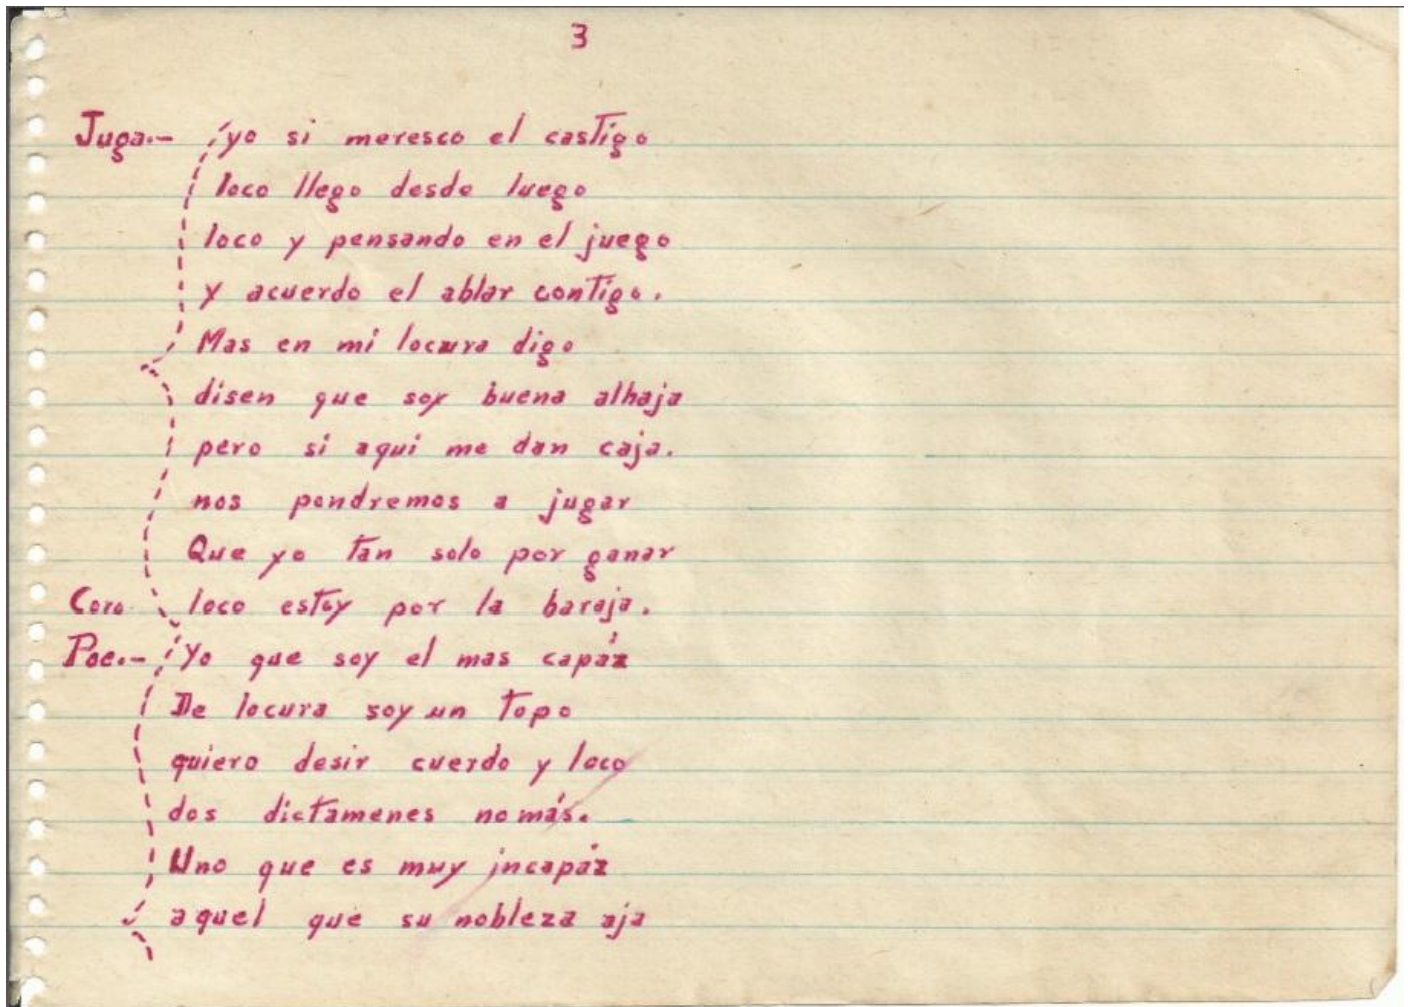 3
Juga.- yo si meresco el castigo
loco llego desde luego
loco y pensando en el juego
y acuerdo el ablar contigo.
Mas en mi locura digo
disen que soy buena alhaja
pero si aqui me dan caja.
nos pondremos a jugar
Que yo tan solo por ganar
Coro loco estoy por la baraja.
Poe.- Yo que soy el mas capáz
De locura soy un topo
quiero desir cuerdo y loco
dos dictamenes no más.
Uno que es muy incapáz
aquel que su nobleza aja